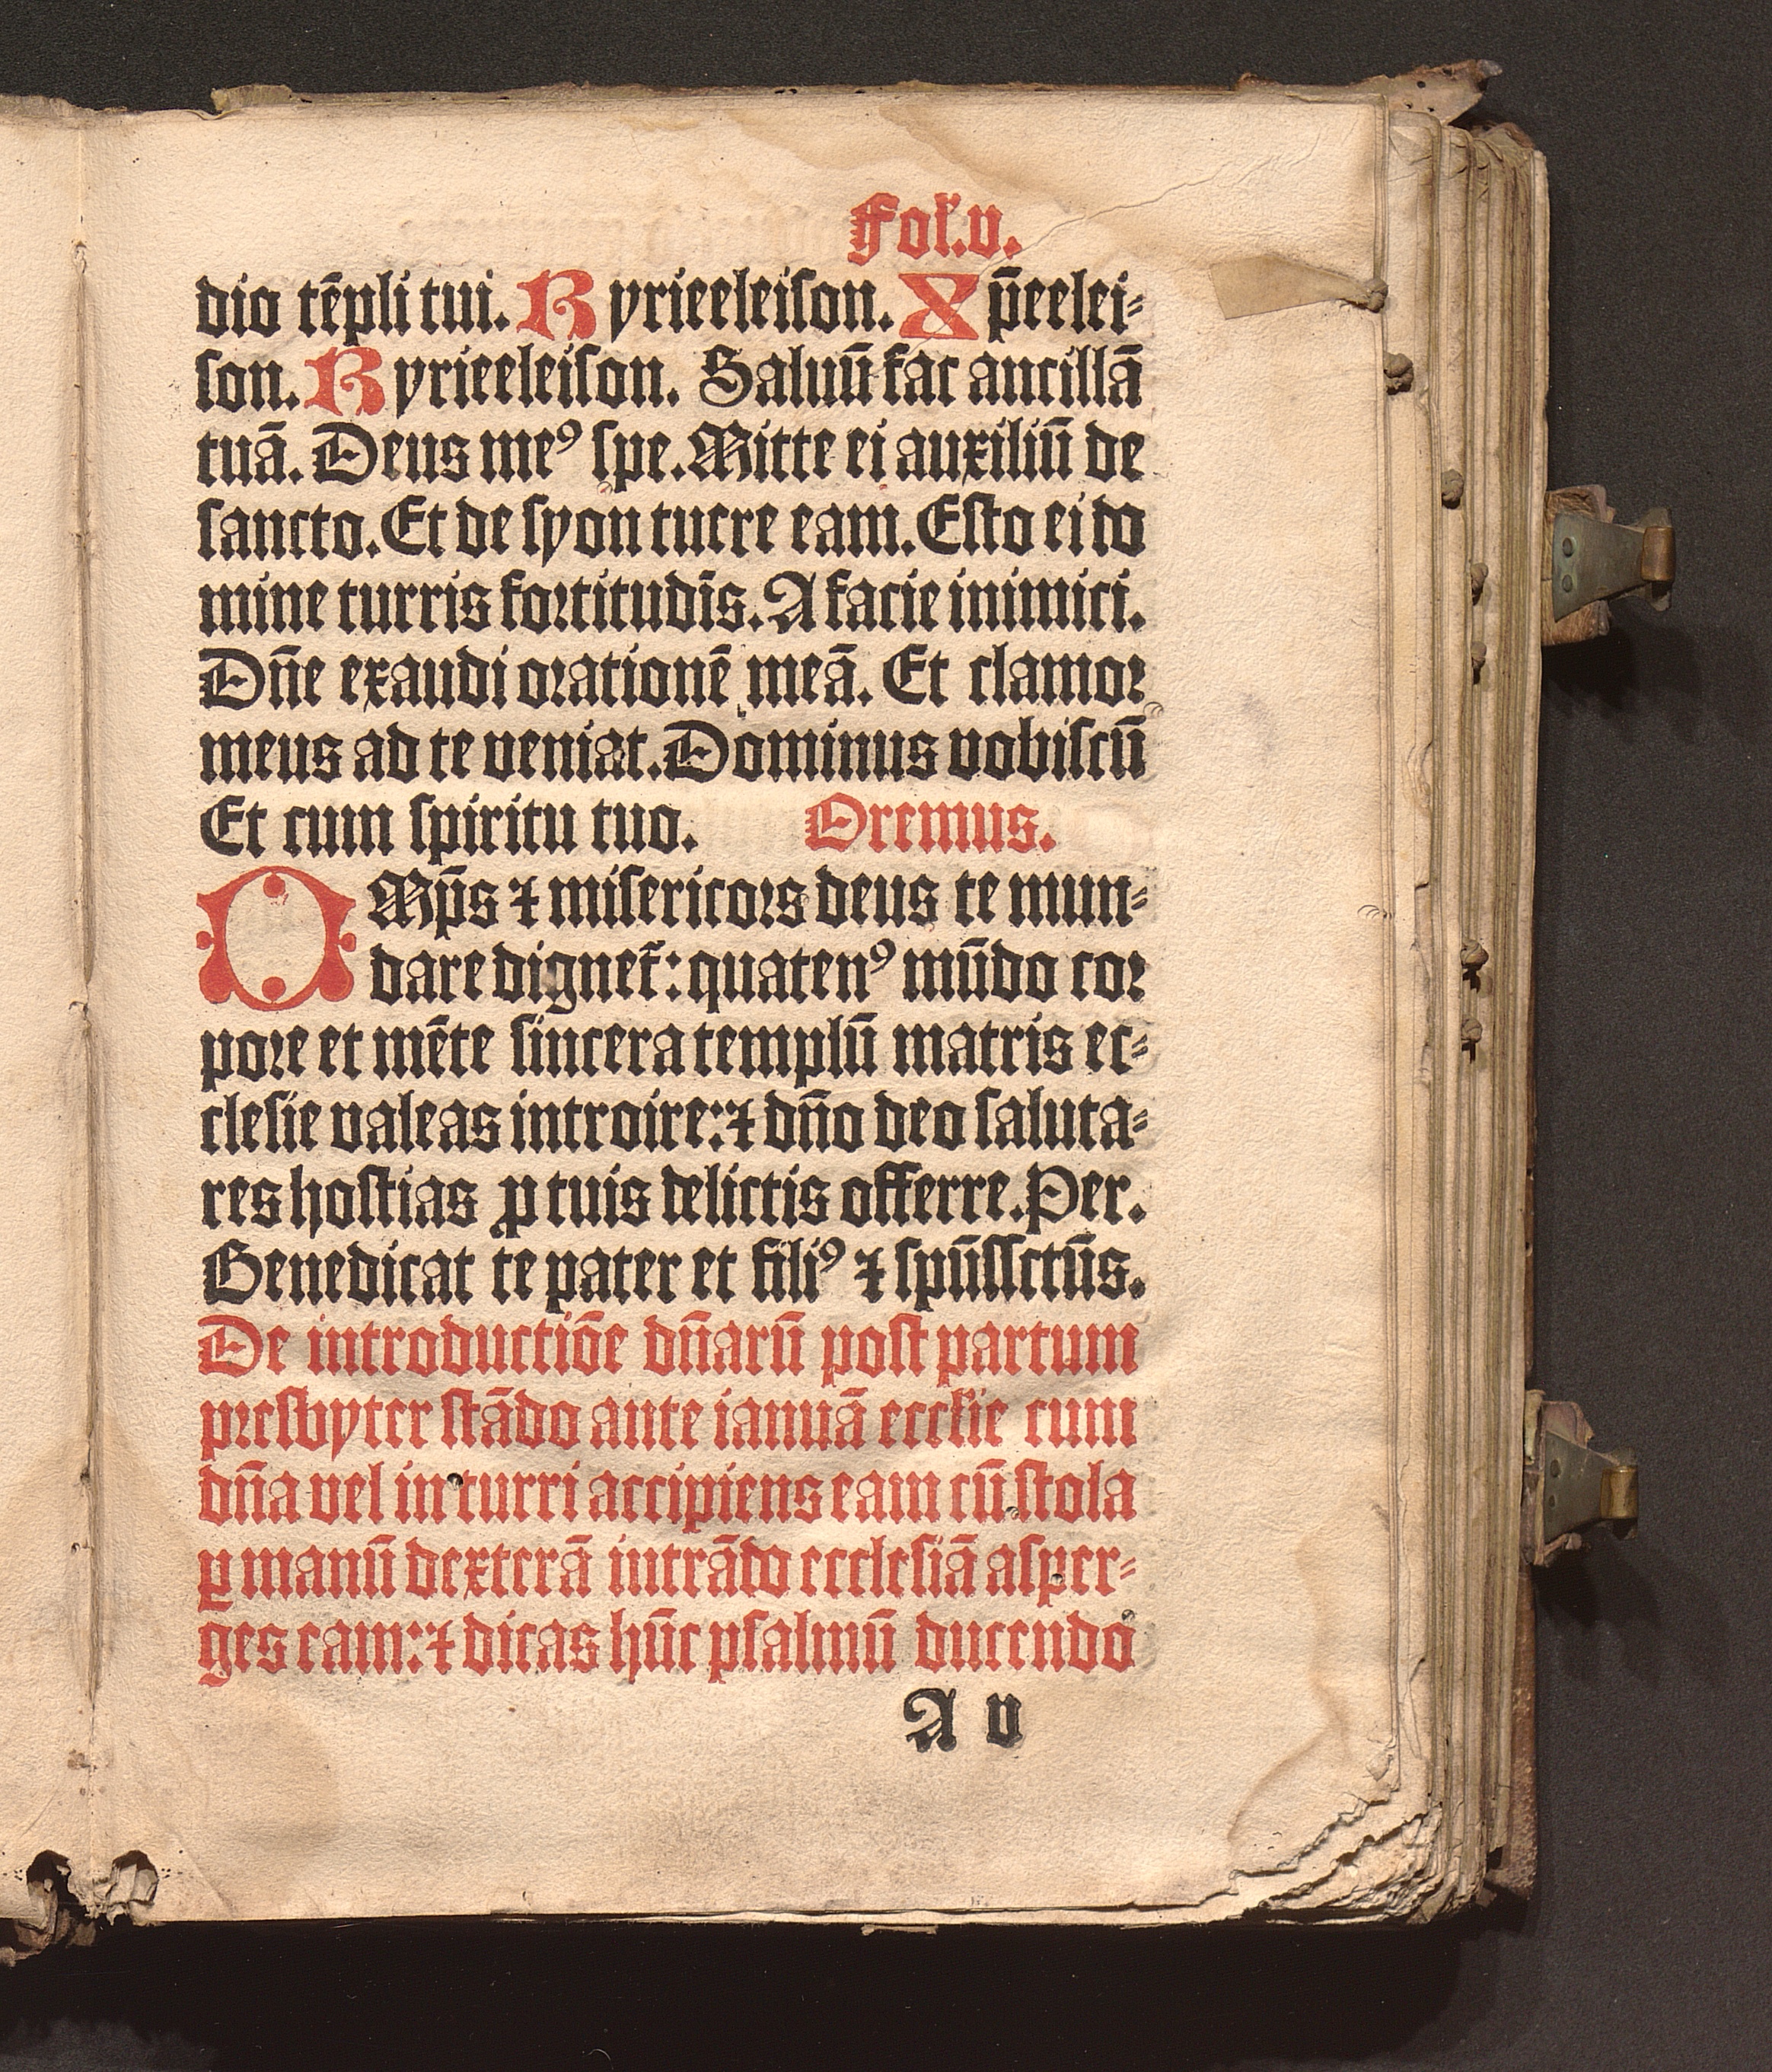 Fol̓.v.
dio tēpli tui. Kyrieeleiſon. Xp̄eelei⸗
ſon. Kyrieeleiſon. Saluū fac ancillā
tuā. Deus meꝰ ſpe. Mitte ei auxiliū de
ſancto. Et de ſyon tucre eam. Eſto ei do
mine turris foꝛtitudīs. A facie inimici.
Dn̄e exaudi oꝛationē meā. Et clamoꝛ
meus ad te veniat. Dominus vobiſcū
Et cum ſpiritu tuo. Oremus.
OMp̄s ⁊ miſericoꝛs deus te mun⸗
dare dignet᷑: quatenꝰ mūdo coꝛ
poꝛe et mēte ſincera templū matris ec⸗
cleſie valeas introire: ⁊ dn̄o deo ſaluta⸗
res hoſtias ꝓ tuis delictis offerre. Per.
Benedicat te pater et filiꝰ ⁊ ſpūſſctūs.
De introductiōe dn̄arū poſt partum
pꝛeſbyter ſtādo ante ianuā eccl̓ie cum
dn̄a vel in turri accipiens eam cū ſtola
ꝑ manū dexterā intrādo eccleſiā aſper⸗
ges eam: ⁊ dicas hūc pſalmū ducendo
A v